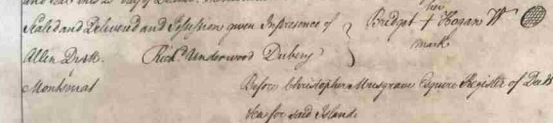 her
Sealed and Delivered and Possession given In presence of } Bridget + Hogan
mark
Allen Dusk. Richd Underwood Dubery
Montserrat
Before Christopher Musgrave Esquire Register of Deeds
&ca for said Island.